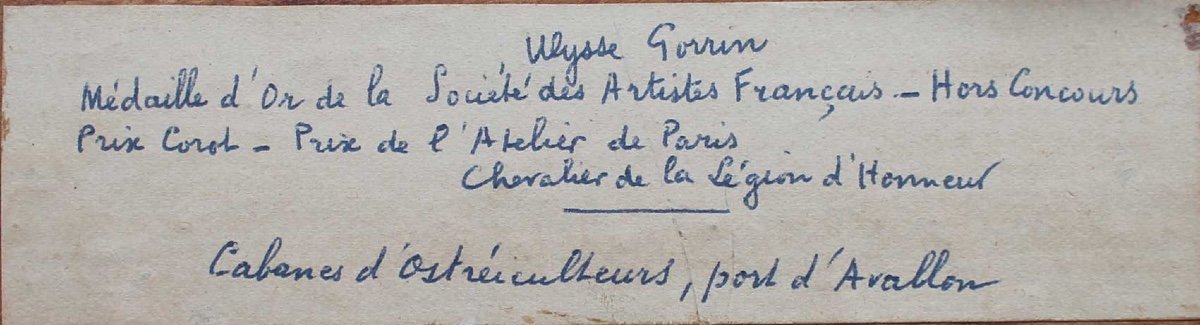 Ulysse Gorrin
Médaille d'Or de la Société des Artistes Français - Hors Concours
Prix Corot - Prix de l'Atelier de Paris
Chevalier de la Légion d'Honneur
Cabanes d'Ostréiculteurs, port d'Avallon